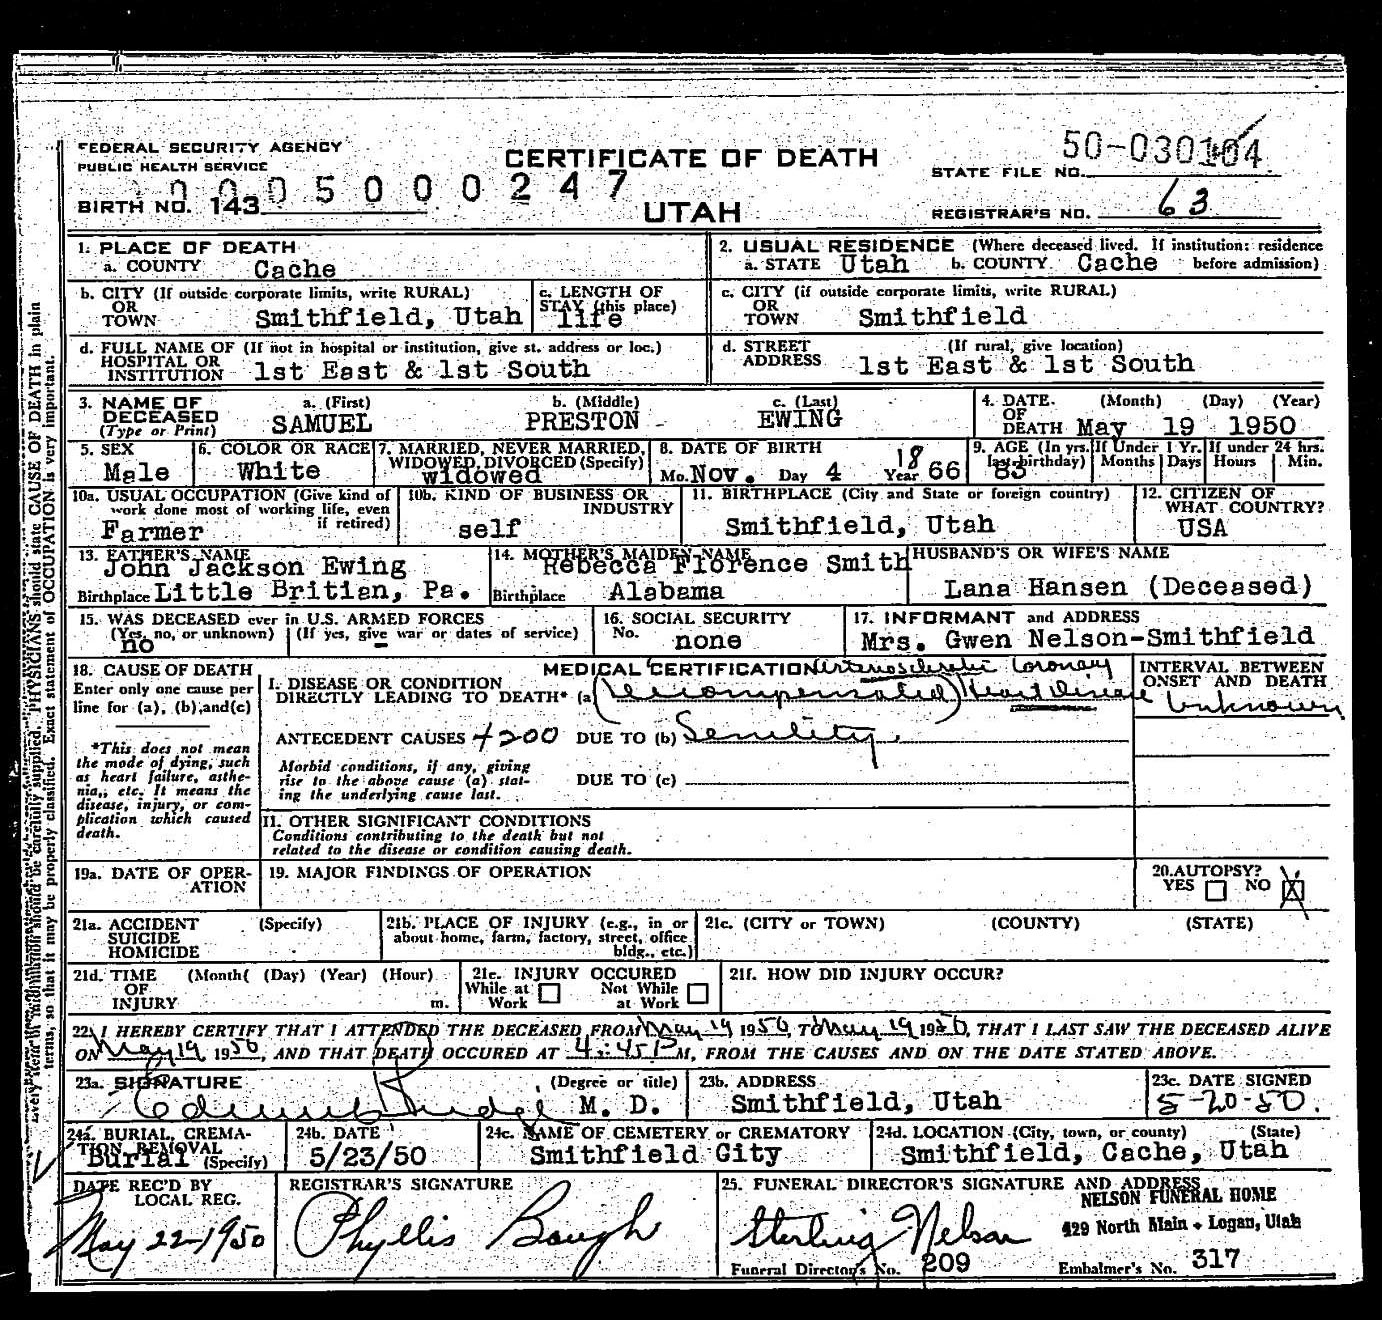 FEDERAL SECURITY AGENCY
PUBLIC HEALTH SERVICE
CERTIFICATE OF DEATH
UTAH
50-030104
STATE FILE NO.
0005000247
BIRTH NO. 143
REGISTRAR'S NO. 63
1. PLACE OF DEATH
a. COUNTY Cache
2. USUAL RESIDENCE (Where deceased lived. If institution: residence
a. STATE Utah b. COUNTY Cache before admission)
b. CITY (If outside corporate limits, write RURAL)
OR
TOWN Smithfield, Utah
c. LENGTH OF
STAY (this place)
life
c. CITY (if outside corporate limits, write RURAL)
OR
TOWN Smithfield
d. FULL NAME OF (If not in hospital or institution, give st. address or loc.)
HOSPITAL OR
INSTITUTION 1st East & 1st South
d. STREET (If rural, give location)
ADDRESS 1st East & 1st South
3. NAME OF a. (First) b. (Middle) c. (Last)
DECEASED SAMUEL PRESTON EWING
(Type or Print)
4. DATE (Month) (Day) (Year)
OF
DEATH May 19 1950
5. SEX
Male
6. COLOR OR RACE
White
7. MARRIED, NEVER MARRIED,
WIDOWED, DIVORCED (Specify)
widowed
8. DATE OF BIRTH 18
Mo. Nov. Day 4 Year 66
9. AGE (In yrs. last birthday)
83
If Under 1 Yr.
Months Days
If under 24 hrs.
Hours Min.
10a. USUAL OCCUPATION (Give kind of
work done most of working life, even
if retired)
Farmer
10b. KIND OF BUSINESS OR
INDUSTRY
self
11. BIRTHPLACE (City and State or foreign country)
Smithfield, Utah
12. CITIZEN OF
WHAT COUNTRY?
USA
13. FATHER'S NAME
John Jackson Ewing
Birthplace Little Britian, Pa.
14. MOTHER'S MAIDEN NAME
Rebecca Florence Smith
Birthplace Alabama
HUSBAND'S OR WIFE'S NAME
Lana Hansen (Deceased)
15. WAS DECEASED ever in U.S. ARMED FORCES
(Yes, no, or unknown) (If yes, give war or dates of service)
no -
16. SOCIAL SECURITY
No. none
17. INFORMANT and ADDRESS
Mrs. Gwen Nelson-Smithfield
18. CAUSE OF DEATH
Enter only one cause per
line for (a), (b), and (c)
*This does not mean
the mode of dying, such
as heart failure, asthe-
nia,, etc. It means the
disease, injury, or com-
plication which caused
death.
MEDICAL CERTIFICATION Arteriosclerotic Coronary
I. DISEASE OR CONDITION
DIRECTLY LEADING TO DEATH* (a) (decompensated) Heart Disease
ANTECEDENT CAUSES 4200 DUE TO (b) Senility
Morbid conditions, if any, giving
rise to the above cause (a) stat-
ing the underlying cause last.
DUE TO (c)
II. OTHER SIGNIFICANT CONDITIONS
Conditions contributing to the death but not
related to the disease or condition causing death.
INTERVAL BETWEEN
ONSET AND DEATH
Unknown
19a. DATE OF OPER-
ATION
19. MAJOR FINDINGS OF OPERATION
20. AUTOPSY?
YES NO X
21a. ACCIDENT (Specify)
SUICIDE
HOMICIDE
21b. PLACE OF INJURY (e.g., in or
about home, farm, factory, street, office
bldg., etc.)
21c. (CITY or TOWN) (COUNTY) (STATE)
21d. TIME (Month( (Day) (Year) (Hour)
OF
INJURY m.
21e. INJURY OCCURED
While at Not While
Work at Work
21f. HOW DID INJURY OCCUR?
22. I HEREBY CERTIFY THAT I ATTENDED THE DECEASED FROM May 19 1950, TO May 19 1950, THAT I LAST SAW THE DECEASED ALIVE
ON May 19, 1950, AND THAT DEATH OCCURED AT 4:45 P M, FROM THE CAUSES AND ON THE DATE STATED ABOVE.
23a. SIGNATURE (Degree or title)
M. D.
23b. ADDRESS
Smithfield, Utah
23c. DATE SIGNED
5-20-50.
24a. BURIAL, CREMA-
TION, REMOVAL
Burial (Specify)
24b. DATE
5/23/50
24c. NAME OF CEMETERY or CREMATORY
Smithfield City
24d. LOCATION (City, town, or county) (State)
Smithfield, Cache, Utah
DATE REC'D BY
LOCAL REG.
May 22-1950
REGISTRAR'S SIGNATURE
Phyllis Baugh
25. FUNERAL DIRECTOR'S SIGNATURE AND ADDRESS
NELSON FUNERAL HOME
429 North Main + Logan, Utah
Sterling Nelson
Funeral Director's No. 209 Embalmer's No. 317
PHYSICIANS should state CAUSE OF DEATH in plain
terms, so that it may be properly classified. Exact statement of OCCUPATION is very important.